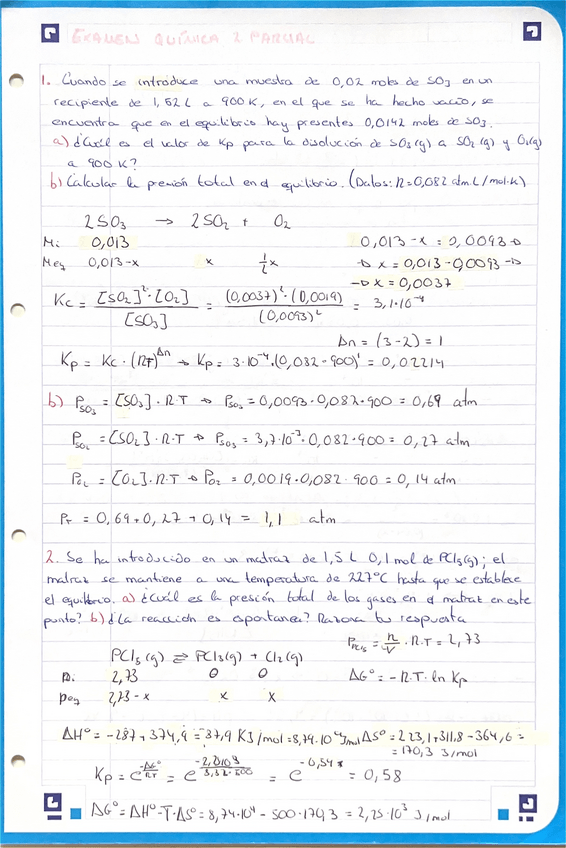 EXAMEN QUÍMICA 2 PARCIAL
1. Cuando se introduce una muestra de 0,02 moles de SO3 en un
recipiente de 1,52 L a 900 K, en el que se ha hecho vacío, se
encuentra que en el equilibrio hay presentes 0,0142 moles de SO3.
a) ¿Cuál es el valor de Kp para la disolución de SO3 (g) a SO2 (g) y O2(g)
a 900 K?
b) Calcular la presión total en el equilibrio. (Datos: R=0,082 atm·L/mol·K)
2SO3 → 2SO2 + O2
Mi 0,013 0,013-x = 0,0093 →
Meq 0,013-x x 1/2x → x = 0,013-0,0093 →
→ x = 0,0037
Kc = [SO2]²·[O2] / [SO3] = (0,0037)²·(0,0019) / (0,0093)² = 3,1·10⁻⁴
Δn = (3-2) = 1
Kp = Kc·(RT)^Δn → Kp = 3·10⁻⁴·(0,082·900)¹ = 0,02214
b) PSO3 = [SO3]·R·T → PSO3 = 0,0093·0,082·900 = 0,69 atm
PSO2 = [SO2]·R·T → PSO3 = 3,7·10⁻³·0,082·900 = 0,27 atm
PO2 = [O2]·R·T → PO2 = 0,0019·0,082·900 = 0,14 atm
PT = 0,69+0,27+0,14 = 1,1 atm
2. Se ha introducido en un matraz de 1,5 L 0,1 mol de PCl5(g); el
matraz se mantiene a una temperatura de 227°C hasta que se establece
el equilibrio. a) ¿Cuál es la presión total de los gases en el matraz en este
punto? b) ¿La reacción es espontanea? Razona tu respuesta
PPCl5 = n/V·R·T = 2,73
PCl5 (g) ⇌ PCl3(g) + Cl2(g)
Pi 2,73 0 0 ΔG° = -R·T·ln Kp
Peq 2,73-x x x
ΔH° = -287+374,9 = 87,9 KJ/mol = 8,79·10⁴J/mol ΔS° = 223,1+311,8-364,6 =
= 170,3 J/mol
Kp = e^(-ΔG°/RT) = e = e = 0,58
ΔG° = ΔH°-T·ΔS° = 8,74·10⁴ - 500·170,3 = 2,25·10³ J/mol